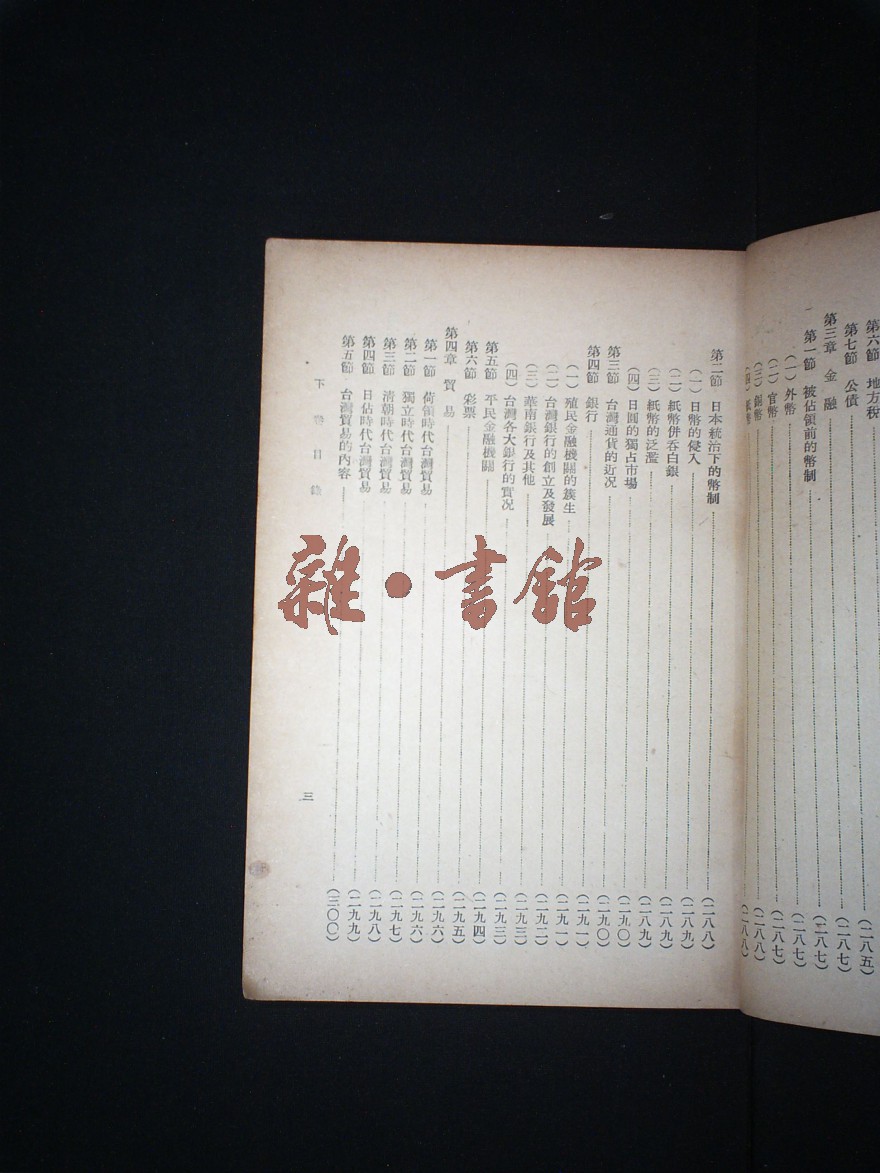 第六節 地方稅………(二八五)
第七節 公債………(二八七)
第三章 金融………(二八七)
第一節 被佔領前的幣制………(二八七)
(一) 外幣………(二八七)
(二) 官幣………(二八八)
(三) 銅幣………(二八八)
(四) 紙幣
第二節 日本統治下的幣制………(二八八)
(一) 日幣的侵入………(二八九)
(二) 紙幣併吞白銀………(二八九)
(三) 紙幣的泛濫………(二八九)
(四) 日圓的獨占市場………(二九〇)
第三節 台灣通貨的近況………(二九〇)
第四節 銀行………(二九一)
(一) 殖民金融機關的簇生………(二九一)
(二) 台灣銀行的創立及發展………(二九二)
(三) 華南銀行及其他………(二九三)
(四) 台灣各大銀行的實況………(二九三)
第五節 平民金融機關………(二九四)
第六節 彩票………(二九五)
第四章 貿易………(二九六)
第一節 荷領時代台灣貿易………(二九六)
第二節 獨立時代台灣貿易………(二九七)
第三節 清朝時代台灣貿易………(二九八)
第四節 日佔時代台灣貿易………(二九九)
第五節 台灣貿易的內容………(三〇〇)
下卷目錄
三
雜·書館